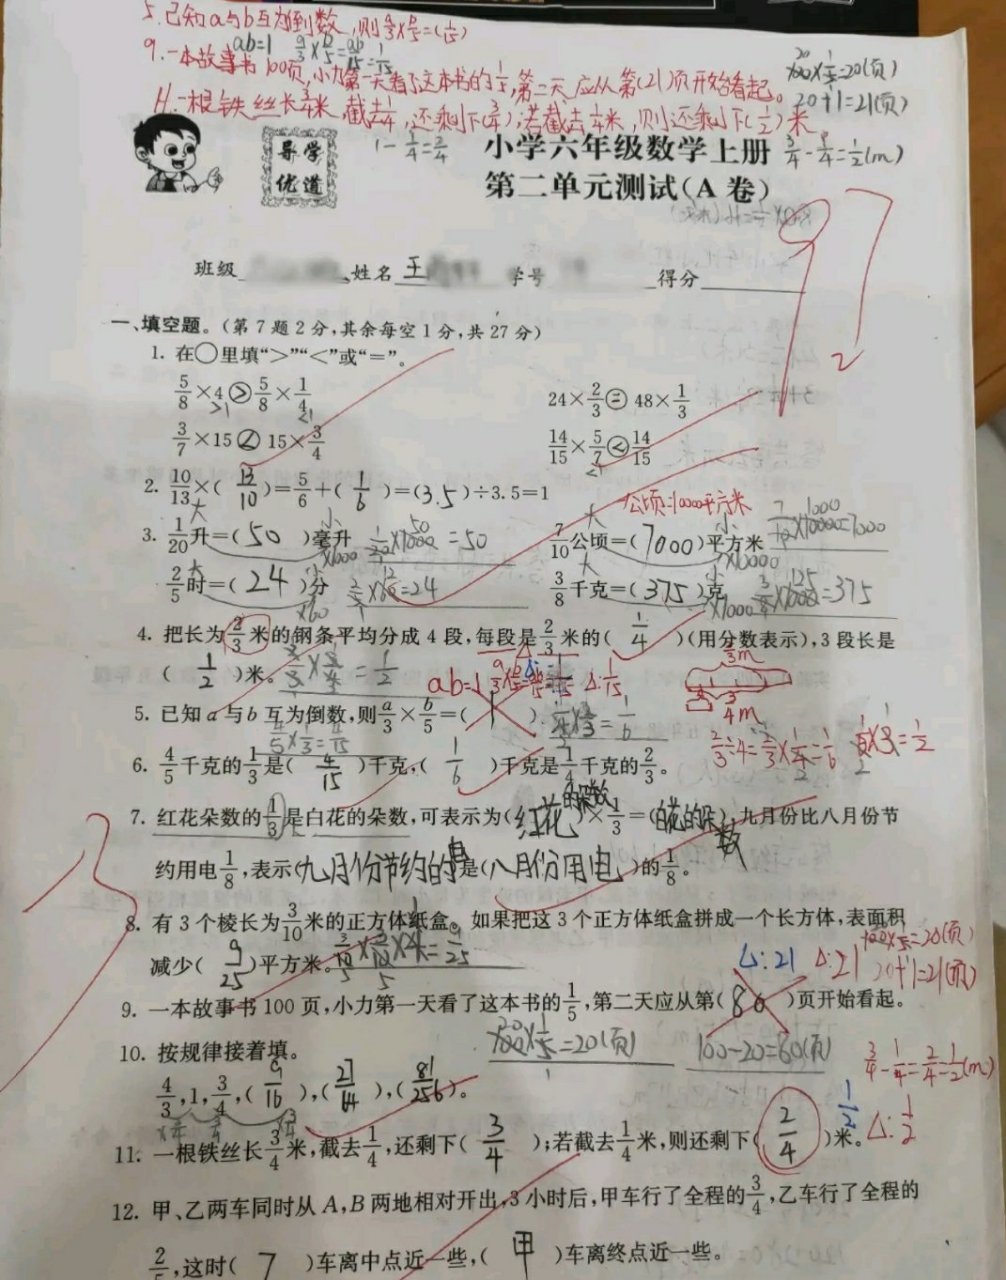 5.已知a与b互为到数,则a/3×b/5=(1/15)
ab=1 a/3×b/5=ab/15=1/15
9.一本故事书100页,小力第一天看了这本书的1/5,第二天应从第(21)页开始看起。
100×1/5=20(页)
20+1=21(页)
11.一根铁丝长3/4米,截去1/4,还剩下(3/4),若截去1/4米,则还剩下(1/2)米
1-1/4=3/4
3/4-1/4=1/2(m)
导学
优道
小学六年级数学上册
第二单元测试(A卷)
97
班级 姓名 王 学号 得分
一、填空题。(第7题2分,其余每空1分,共27分)
1. 在○里填“>”“<”或“=”。
5/8×4>5/8×1/4 24×2/3=48×1/3
>1 <1
3/7×15<15×3/4 14/15×5/7<14/15
<1
2. 10/13×(13/10)=5/6+(1/6)=(3.5)÷3.5=1
公顷=10000平方米
大 小 大 小
3. 1/20升=(50)毫升 1/20×1000=50 7/10公顷=(7000)平方米 7/10×10000=7000
×1000 ×10000
大 小 大 小
2/5时=(24)分 2/5×60=24 3/8千克=(375)克 3/8×1000=375
×60 ×1000
4. 把长为2/3米的钢条平均分成4段,每段是2/3米的(1/4)(用分数表示),3段长是
(1/2)米。2/3×3/4=1/2
ab=1 a/3×b/5=ab/15=1/15 △:1/15
5. 已知a与b互为倒数,则a/3×b/5=(1) 1/4×2/3=1/6
2/3÷4=2/3×1/4=1/6 1/6×3=1/2
4/5×1/3=4/15
6. 4/5千克的1/3是(4/15)千克,(1/6)千克是1/4千克的2/3。
7. 红花朵数的1/3是白花的朵数,可表示为(红花的朵数)×1/3=(白花的朵数);九月份比八月份节
约用电1/8,表示(九月份节约的电)是(八月份用电)的1/8。
8. 有3个棱长为3/10米的正方体纸盒。如果把这3个正方体纸盒拼成一个长方体,表面积
减少(9/25)平方米。3/10×3/10×4=9/25
100×1/5=20(页)
△:21 △:21 20+1=21(页)
9. 一本故事书100页,小力第一天看了这本书的1/5,第二天应从第(80)页开始看起。
100×1/5=20(页) 100-20=80(页)
10. 按规律接着填。
4/3,1,3/4,(9/16),(27/64),(81/256)。
×3/4 ×3/4 ×3/4
3/4-1/4=2/4=1/2(m)
11. 一根铁丝长3/4米,截去1/4,还剩下(3/4);若截去1/4米,则还剩下(2/4)米。1/2 △:1/2
12. 甲、乙两车同时从A,B两地相对开出,3小时后,甲车行了全程的3/4,乙车行了全程的
2/5,这时(乙)车离中点近一些,(甲)车离终点近一些。